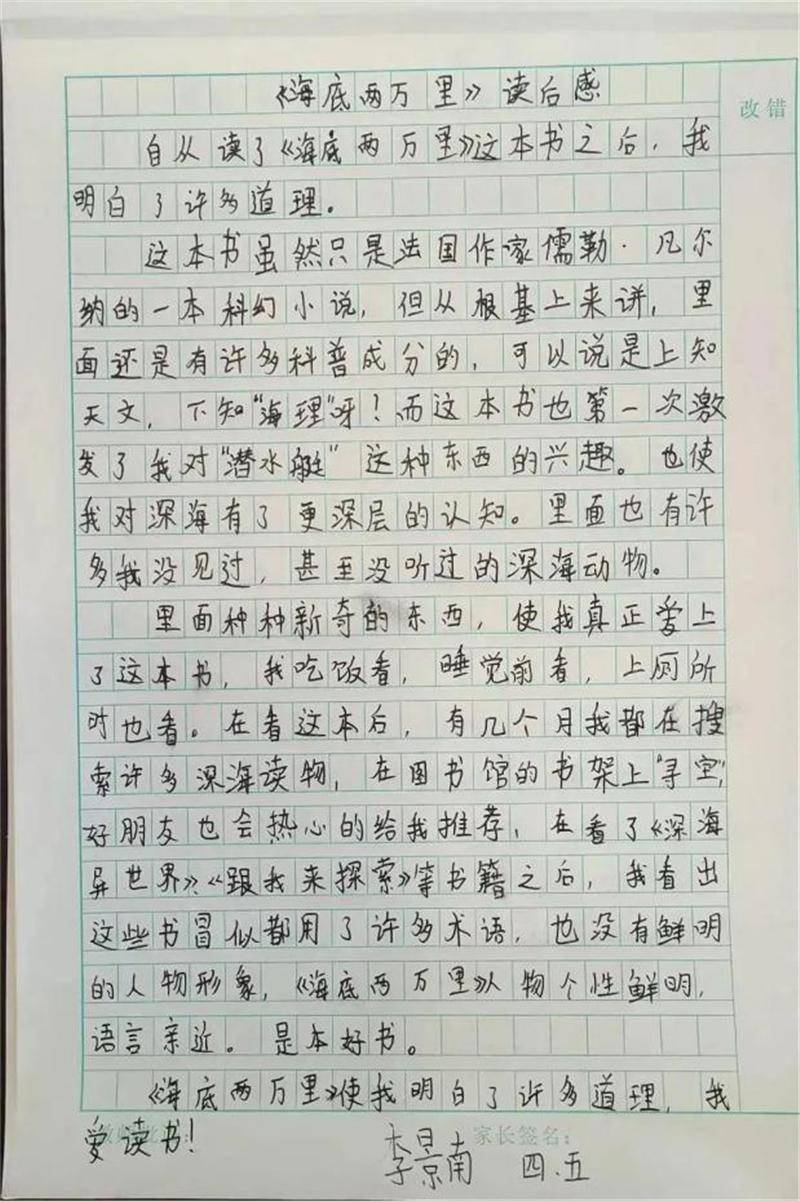 《海底两万里》读后感
改错
自从读了《海底两万里》这本书之后，我
明白了许多道理。
这本书虽然只是法国作家儒勒·凡尔
纳的一本科幻小说，但从根基上来讲，里
面还是有许多科普成分的，可以说是上知
天文，下知“海理”呀！而这本书也第一次激
发了我对“潜水艇”这种东西的兴趣。也使
我对深海有了更深层的认知。里面也有许
多我没见过，甚至没听过的深海动物。
里面种种新奇的东西，使我真正爱上
了这本书，我吃饭看，睡觉前看，上厕所
时也看。在看这本后，有几个月我都在搜
索许多深海读物，在图书馆的书架上“寻宝”，
好朋友也会热心的给我推荐，在看了《深海
异世界》、《跟我来探索》等书籍之后，我看出
这些书冒似都用了许多术语，也没有鲜明
的人物形象，《海底两万里》人物个性鲜明，
语言亲近。是本好书。
《海底两万里》使我明白了许多道理，我
爱读书！
家长签名：
李景南 四.五